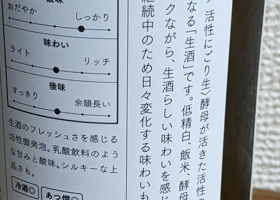 酸味
おだやか
しっかり
味わい
ライト
リッチ
後味
すっきり
余韻長い
生酒のフレッシュさを感じる
活性微発泡。乳酸飲料のよう
な甘みと酸味。シルキーな上
品さも。
冷酒◎
あつ燗◎
活性にごり生)酵母が活きた活性の
なる「生酒」です。低精白、飯米、酵母
クながら、生酒らしい味わいを感じ
継続中のため日々変化する味わいも